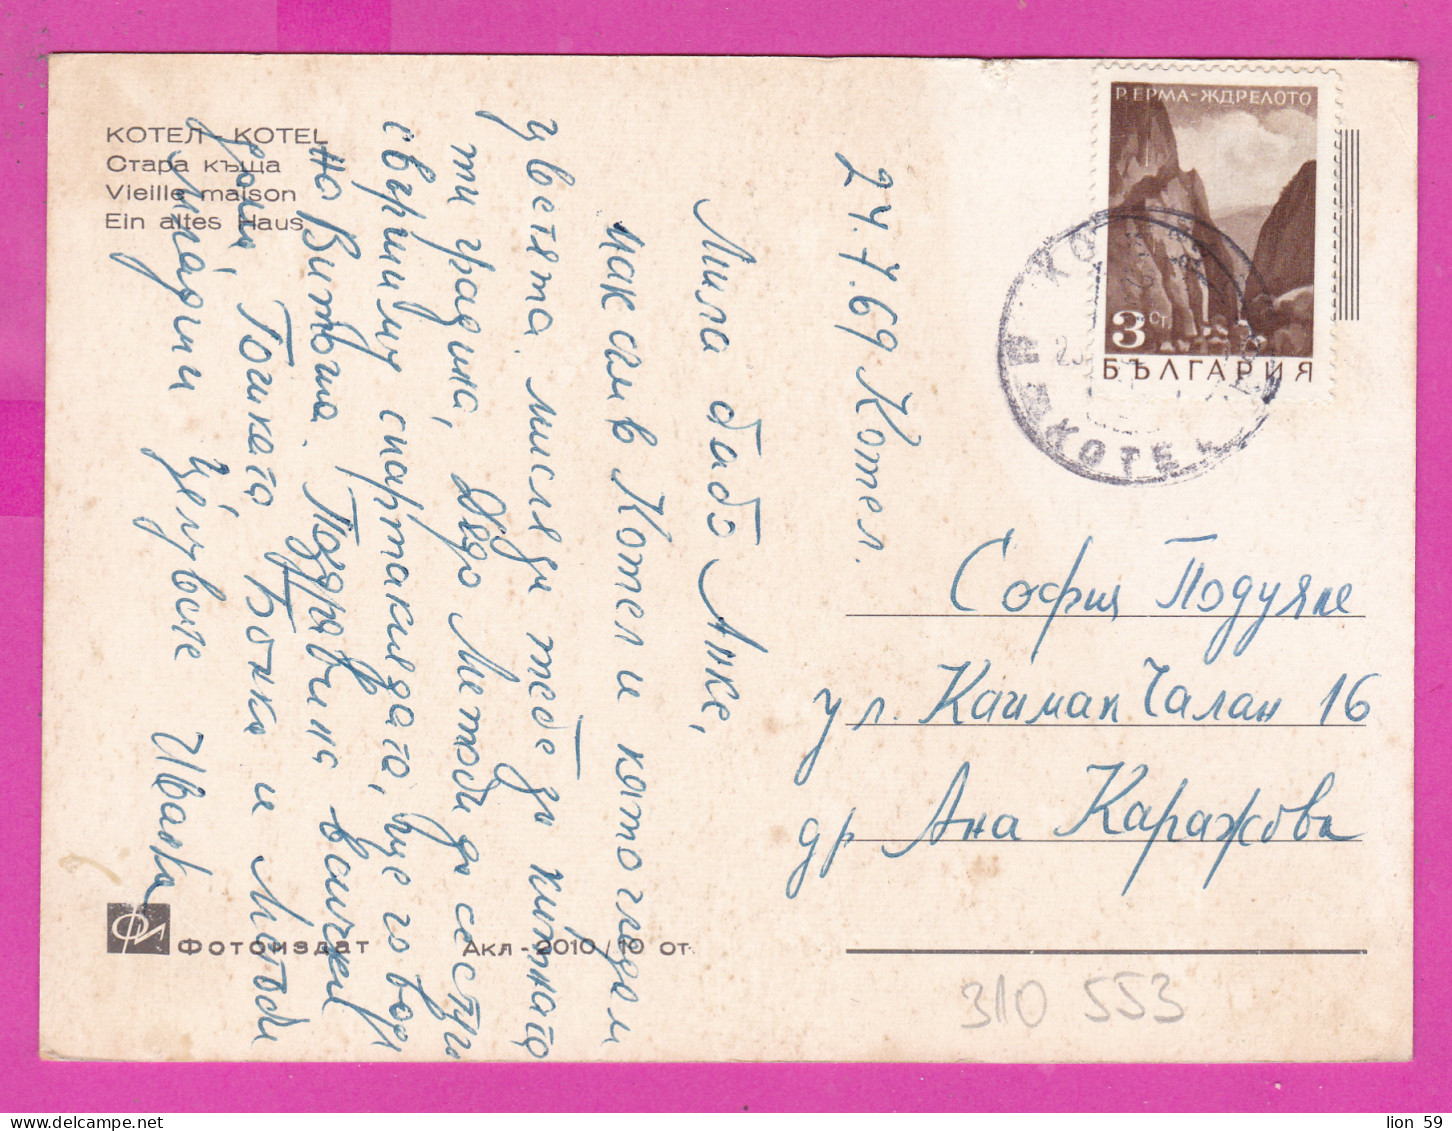 КОТЕЛ - KOTEL
Стара къща
Vieille maison
Ein altes Haus
Р. ЕРМА-ЖДРЕЛОТО
3 СТ.
БЪЛГАРИЯ
КОТЕЛ
24.7.69 Котел.
Мила бабо Анке,
пак съм в Котел и като гледам
цветята, мисля за тебе, за китната
ти градина. Дядо Методи да се
свърши му спартакиадата,
но Витоша. Поздрави на всички
Гошката, Бонка и
Младши целувам Иванка
София Подуяне
ул. Каймакчалан 16
др Ана Каражова
ФОТОИЗДАТ
Акл-2010/10 от
310 553
lion 59